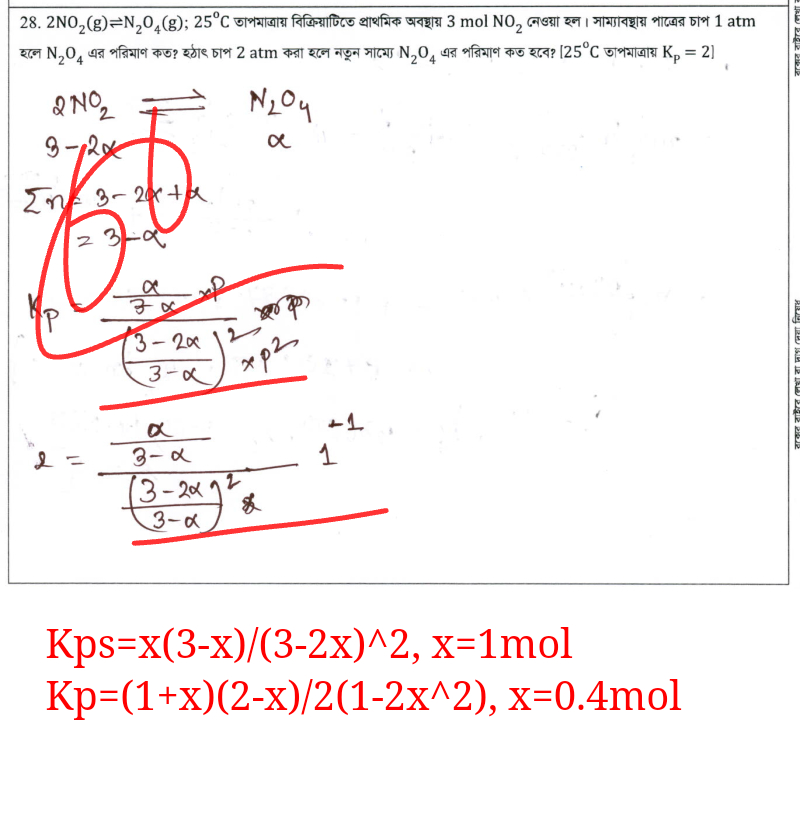 28. 2NO₂(g)⇌N₂O₄(g); 25°C তাপমাত্রায় বিক্রিয়াটিতে প্রাথমিক অবস্থায় 3 mol NO₂ নেওয়া হল। সাম্যাবস্থায় পাত্রের চাপ 1 atm
হলে N₂O₄ এর পরিমাণ কত? হঠাৎ চাপ 2 atm করা হলে নতুন সাম্যে N₂O₄ এর পরিমাণ কত হবে? [25°C তাপমাত্রায় Kₚ = 2]
2NO₂ ⇌ N₂O₄
3-2α α
Σn = 3-2α+α
= 3-α
Kp = (α/(3-α) × P) / (((3-2α)/(3-α))² × P²)
2 = (α/(3-α)) / (((3-2α)/(3-α))²) 1⁻¹
Kps=x(3-x)/(3-2x)^2, x=1mol
Kp=(1+x)(2-x)/2(1-2x^2), x=0.4mol